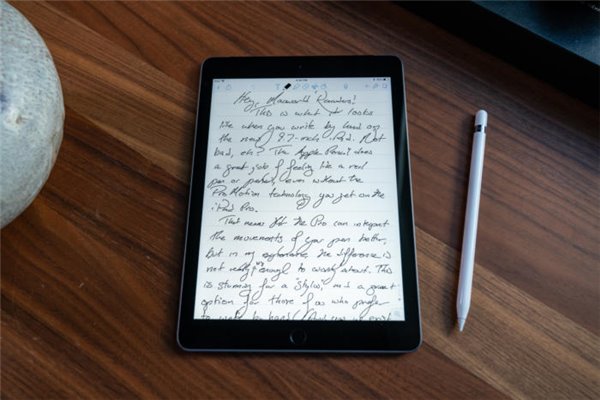 Hey, Macworld Readers!
This is what it looks
like when you write by hand on
the new 9.7-inch iPad. Not
bad, eh? The Apple Pencil does
a great job of feeling like a real
pen or pencil, even without the
ProMotion technology you get on the
iPad Pro.
This means that the Pro can interpret
the movements of your pen better,
but in my experience, the difference is
not really enough to worry about. This
is stunning for a "stylus", and a great
option for those of us who prefer
to write by hand (And yes we exist